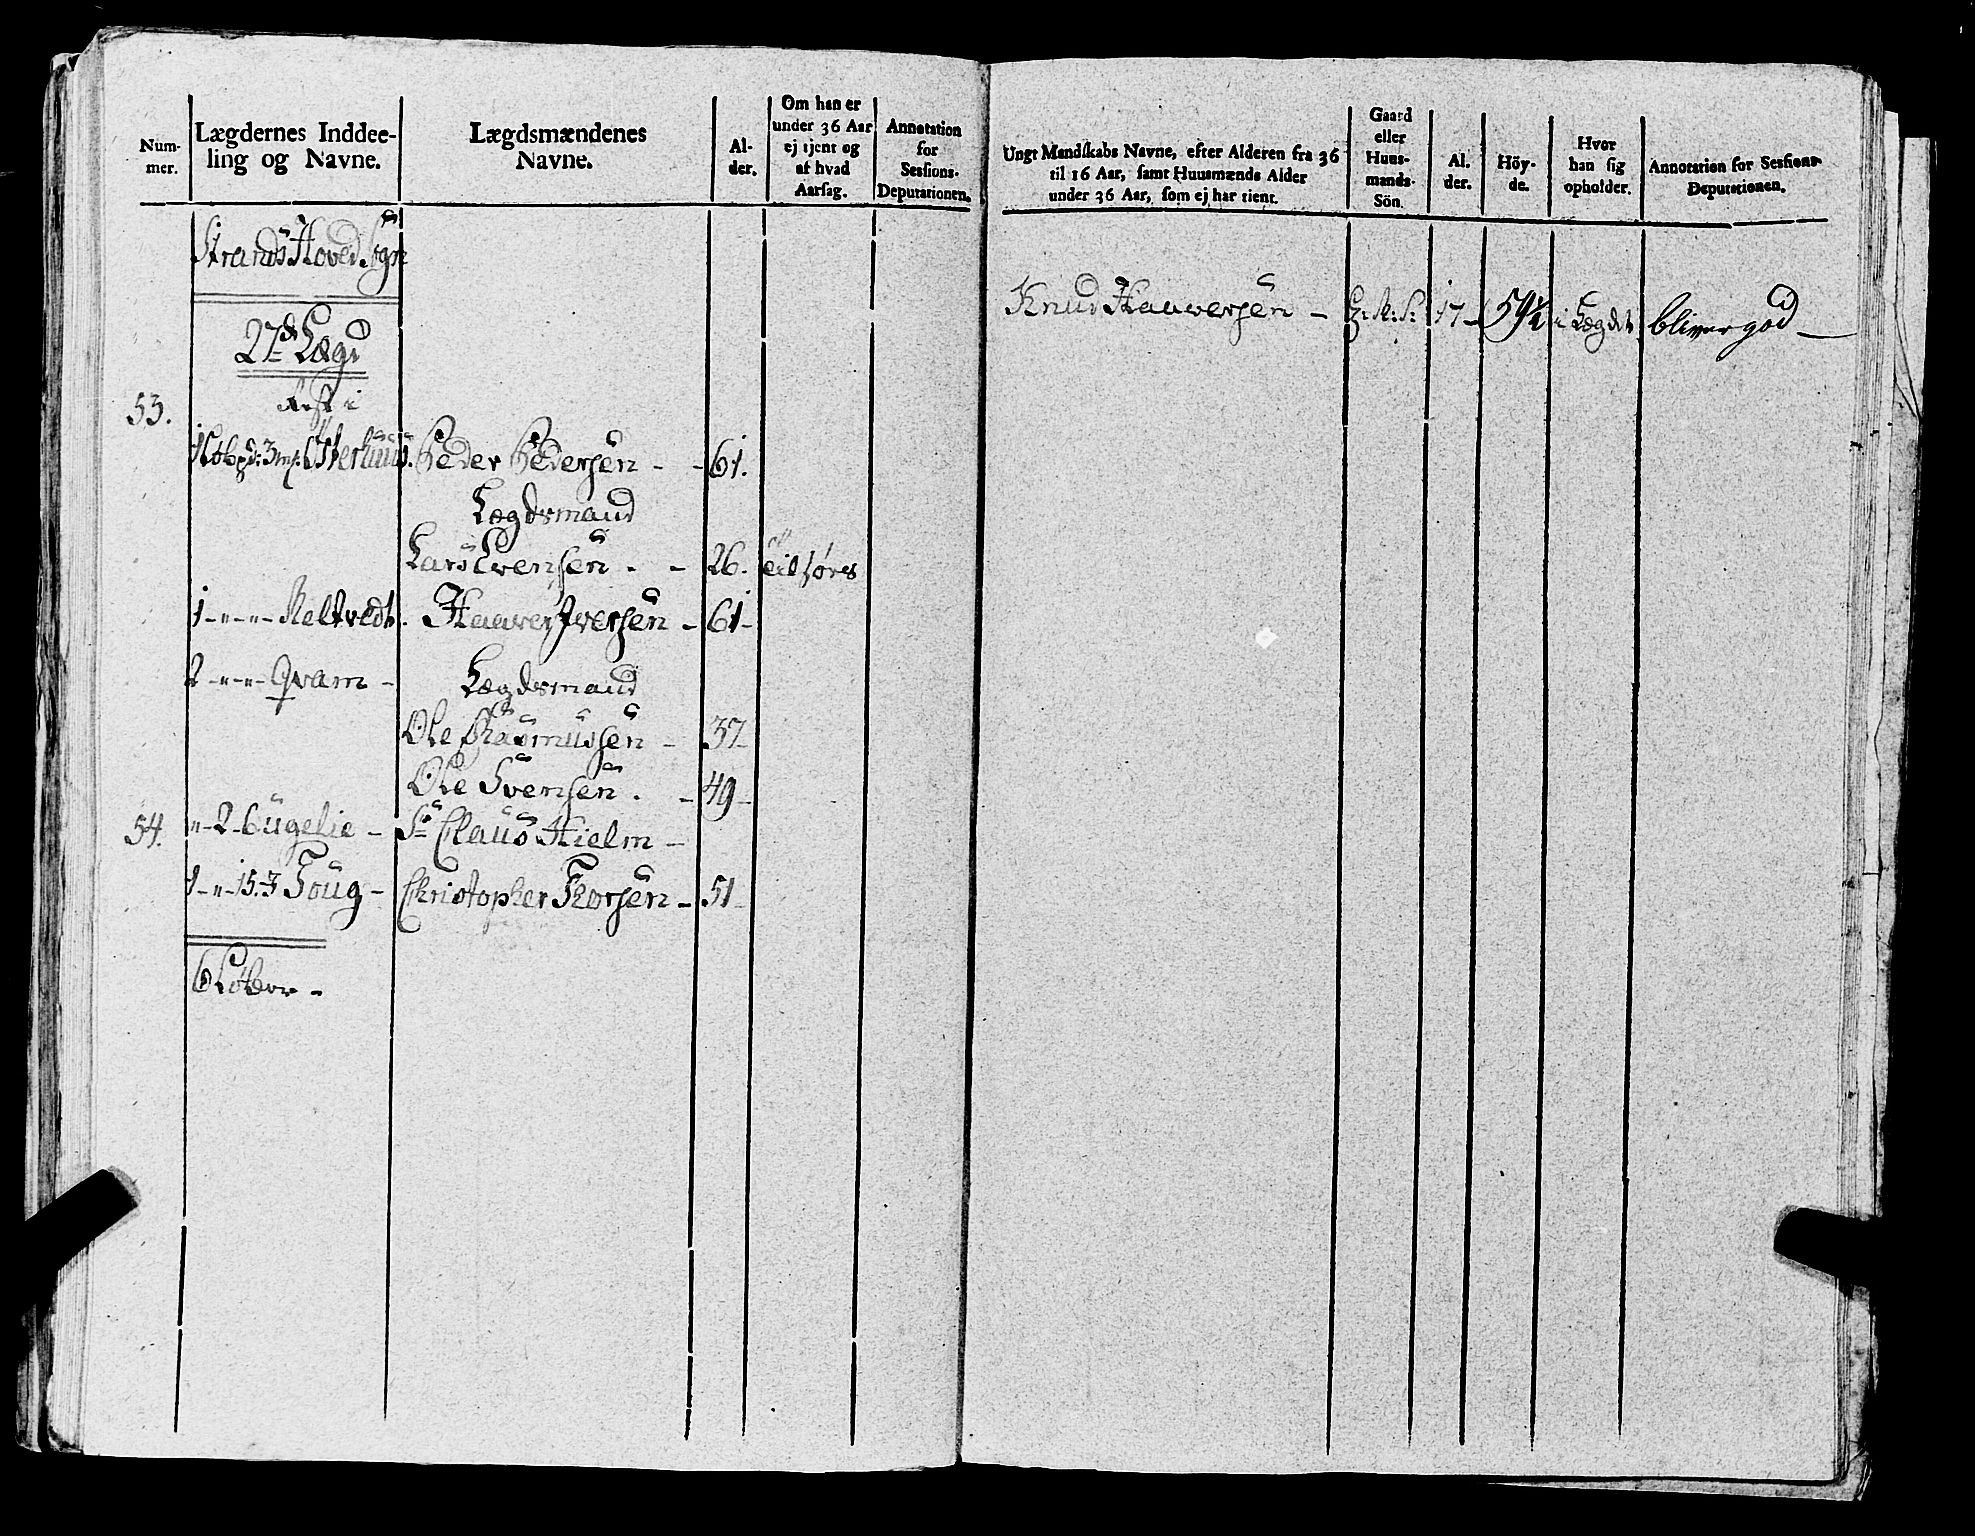 Num-
mer.
Lægdernes Inddee-
ling og Navne.
Lægdsmændenes
Navne.
Al-
der.
Om han er
under 36 Aar
ej tjent og
af hvad
Aarsag.
Annotation
for
Sessions-
Deputationen.
Strands Hoved Sogn
27de Lægd
53.
Østerhuus. Peder Pedersen - - 61.
Lægdsmand
Lars Evensen . - 26.
1 - " - " - Meltvedt. Haaver Iversen - 61 -
2 - " - " - Qvam - Lægdsmand
Ole Rasmussen - 37 -
Ole Svensen . - 49 -
54. " - 2 - Bugelie - Sr Claus Hielm -
1 - " - 15. - Houg - Christopher Thorsen - 51 -
6 Løber -
Ungt Mandskabs Navne, efter Alderen fra 36
til 16 Aar, samt Huusmænds Alder
under 36 Aar, som ej har tient.
Gaard
eller
Huus-
mands-
Sön.
Al.
der.
Höy-
de.
Hvor
han sig
opholder.
Annotation for Sessions-
Deputationen.
Knud Haaversen - 17 - i Lægdet bliver god -